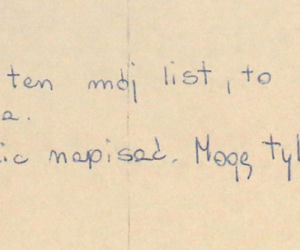 ten mój list, to
a.
ic napisać. Mogę tyl